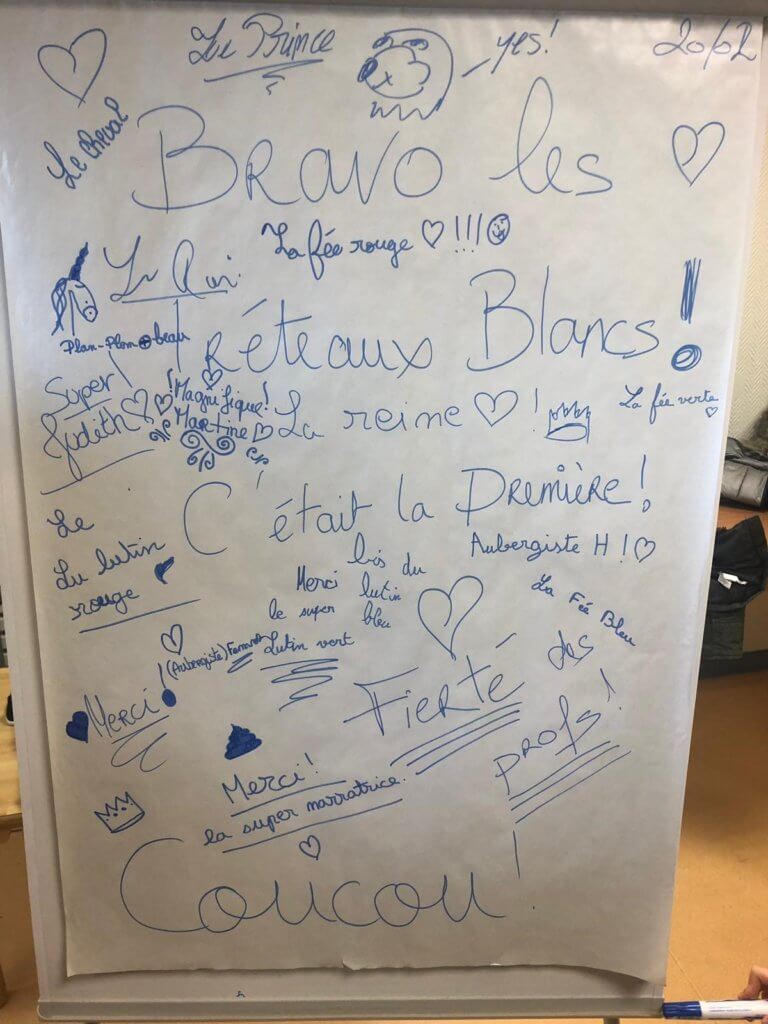 Le Prince
yes!
20/02
Le Cheval
Bravo les
La fée rouge !!!
Le Roi
Plan-Plan beau
Tréteaux Blancs!
Super!
Judith
!Magnifique!
Martine
La reine !
La fée verte
C'était la Première!
Aubergiste H !
Le
Lu lutin
rouge
bis du
Merci lutin
le super bleu
La Fée Bleu
(Aubergiste)
Lutin vert
Merci!
Fierté des
profs!
Merci!
la super narratrice.
Coucou!